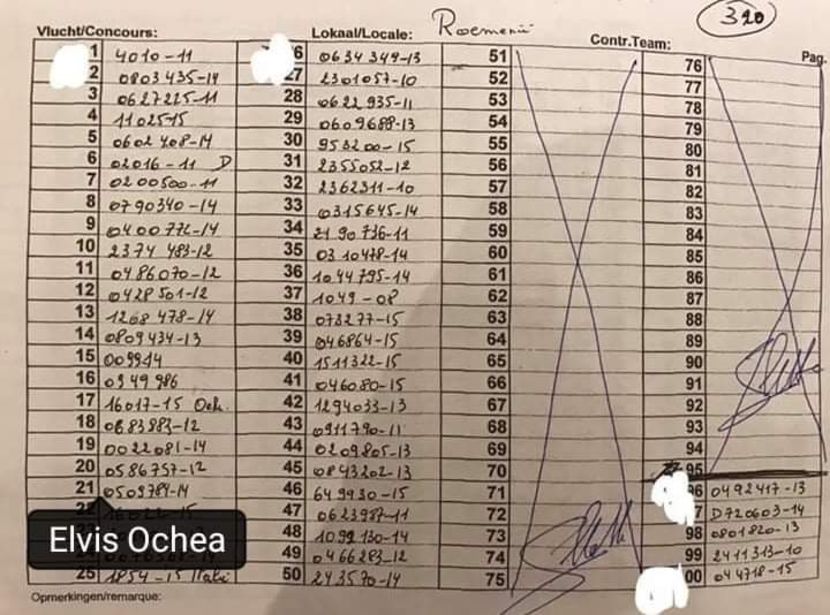 320
Vlucht/Concours: Lokaal/Locale: Roemenië Contr.Team: Pag.
1 4010-11
2 0803435-14
3 0627225-11
4 1102515
5 0602408-14
6 02016-11 D
7 0200500-11
8 0790340-14
9 0400772-14
10 2374483-12
11 0486070-12
12 0428501-12
13 1268478-14
14 0809434-13
15 009914
16 0949986
17 16017-15 Och.
18 0683983-12
19 0022081-14
20 0586757-12
21 0509784-14
Elvis Ochea
25 1854-15 Italië
6 0634349-13
27 2301057-10
28 0622935-11
29 0609688-13
30 953200-15
31 2355052-12
32 2362311-10
33 0315645-14
34 2190736-11
35 0310478-14
36 1044795-14
37 1049-08
38 073277-15
39 046864-15
40 1511322-15
41 046080-15
42 1294033-13
43 0911790-11
44 0209805-13
45 0843202-13
46 649930-15
47 0623987-11
48 1092130-14
49 0466283-12
50 243570-14
51
52
53
54
55
56
57
58
59
60
61
62
63
64
65
66
67
68
69
70
71
72
73
74
75
76
77
78
79
80
81
82
83
84
85
86
87
88
89
90
91
92
93
94
95
96 0492417-13
7 D720603-14
98 0801820-13
99 2411313-10
00 044718-15
Opmerkingen/remarque: